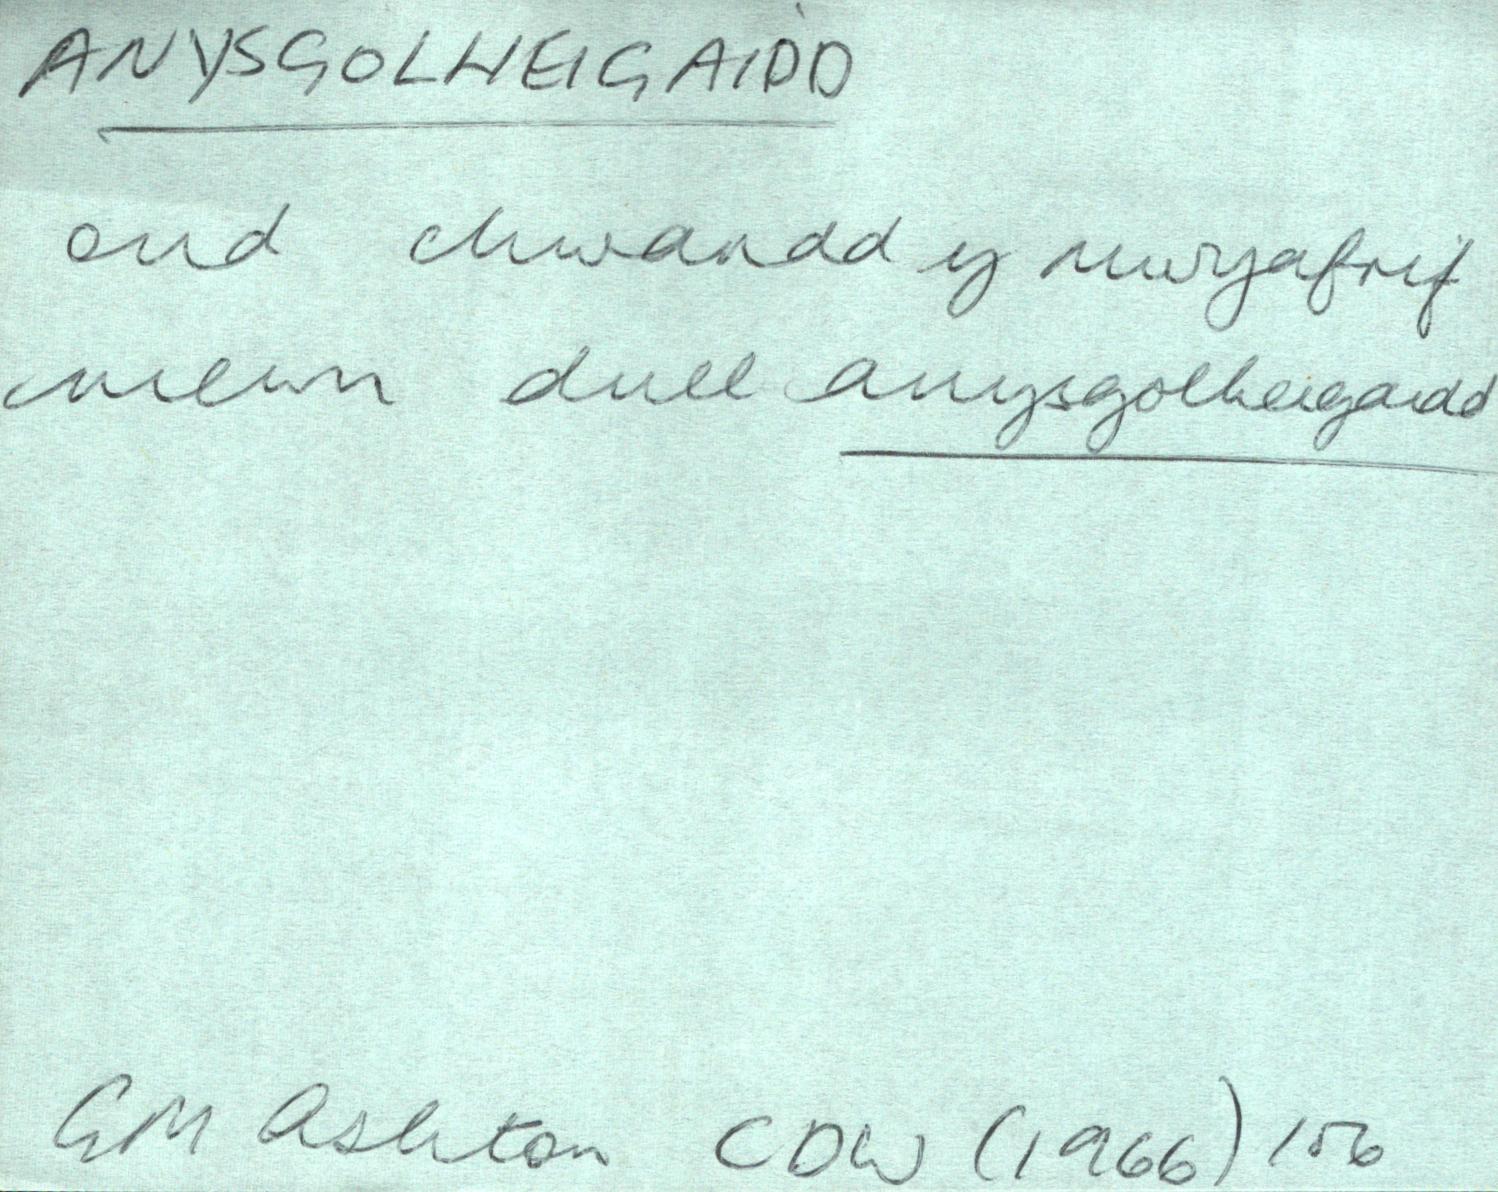 ANYSGOLHEIGAIDD
ond chwardd y mwyafrif
mewn dull anysgolheigaidd
GM Ashton CDW (1966) 156